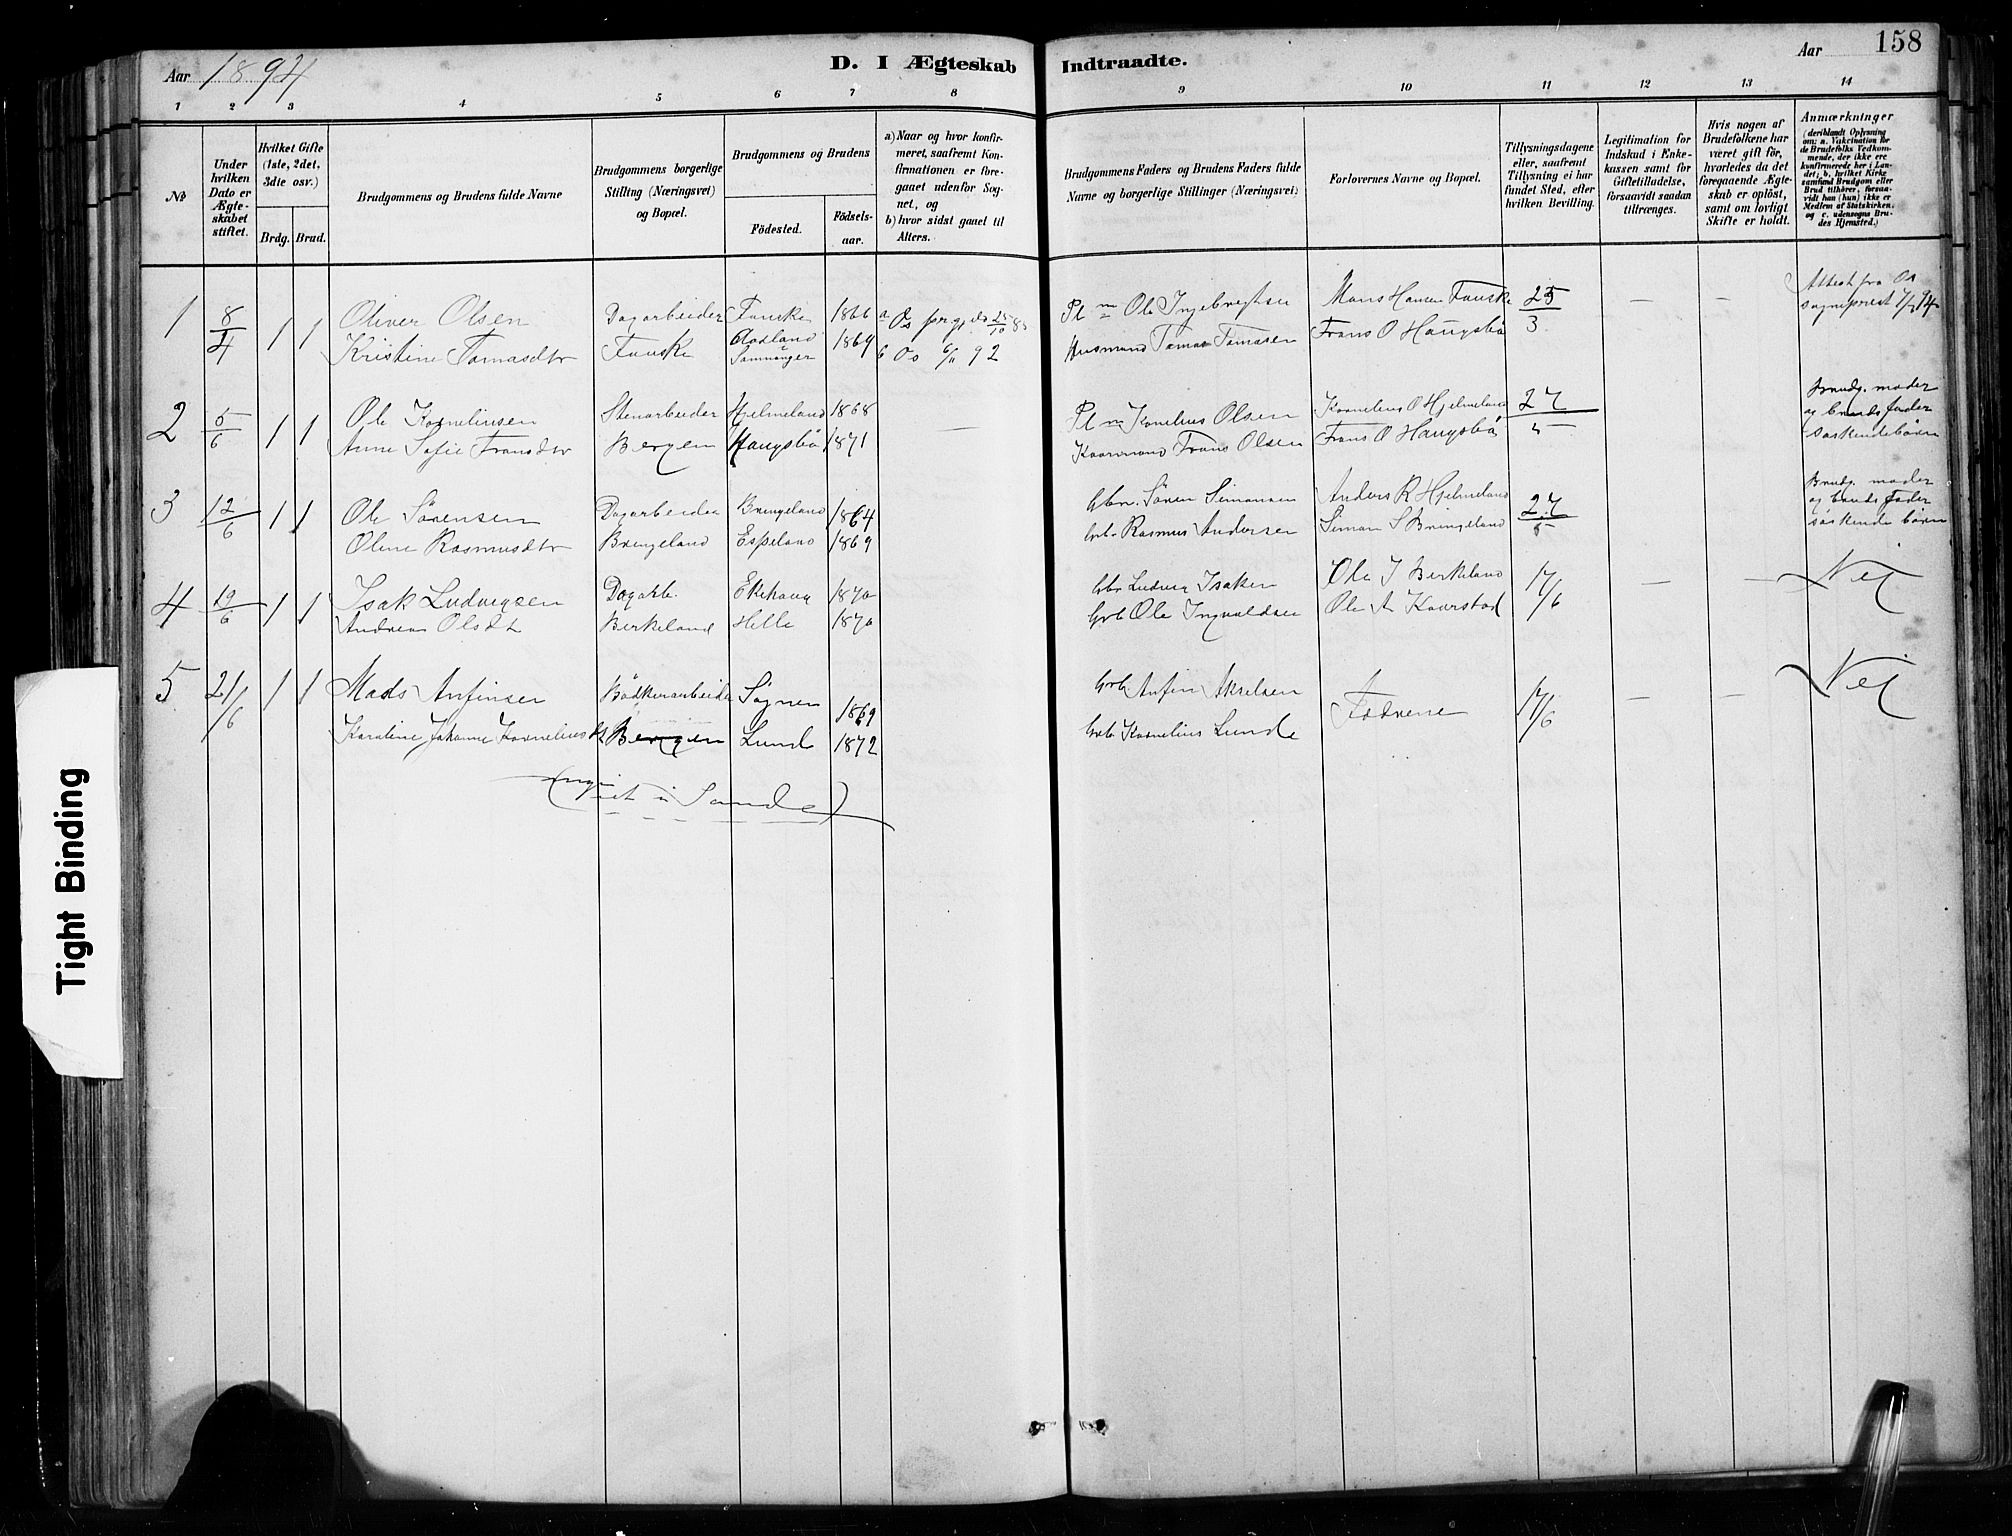 Aar 1894
D. I Ægteskab Indtraadte.
Aar 158
1 2 3 4 5 6 7 8 9 10 11 12 13 14
№
Under hvilken Dato er Ægteskabet stiftet.
Hvilket Gifte (1ste, 2det, 3die osv.)
Brdg. Brud.
Brudgommens og Brudens fulde Navne
Brudgommens borgerlige Stilling (Næringsvei) og Bopæl.
Brudgommens og Brudens
Födested.
Födsels-aar.
a) Naar og hvor konfirmeret, saafremt Konfirmationen er foregaaet udenfor Sognet, og
b) hvor sidst gaaet til Alters.
Brudgommens Faders og Brudens Faders fulde Navne og borgerlige Stillinger (Næringsvei)
Forlovernes Navne og Bopæl.
Tillysningsdagene eller, saafremt Tillysning ei har fundet Sted, efter hvilken Bevilling.
Legitimation for Indskud i Enkekassen samt for Giftetilladelse, forsaavidt saadan tiltrænges.
Hvis nogen af Brudefolkene har været gift før, hvorledes da det foregaaende Ægteskab er oplöst, samt om lovligt Skifte er holdt.
Anmærkninger
(deriblandt Oplysning om: a. Vakcination for de Brudefolks Vedkommende, der ikke ere konfirmerede her i Landet; b. hvilket Kirkesamfund Brudgom eller Brud tilhörer, forsaavidt han (hun) ikke er Medlem af Statskirken, og c. udensogns Brudes Hjemsted.)
1 8/4 1 1 Oliver Olsen Dagarbeider Fanske 1866 a Os Plm Ole Ingebregtsen Mons Hansen Fanske 25/3 — — Attest fra Os
Kristine Tomasdtr Fanske Samnanger 1869 b Os 6/11 92 Husmand Tomas Tomasen Frans O Haugsbö sogneprest 7/4 94
2 5/6 1 1 Ole Kornelinsen Stenarbeider Hjelmeland 1868 — Plm Kornelius Olsen Kornelius O Hjelmeland 27/5 Brudg. moder
Anne Sofie Fransdtr Bergen Haugsbö 1871 Frans Olsen Frans O Haugsbö og bruds fader söskendebörn
3 12/6 1 1 Ole Sörensen Dagarbeider Bringeland 1864 Gbr. Sören Simonsen Anders R Hjelmeland 27/5 Brudg. moder
Oline Rasmusdtr Bringeland Espeland 1869 Grb. Rasmus Andersen Simon S Bringeland og bruds Fader söskende börn
4 19/6 1 1 Isak Ludvigsen Dagarb. Ekehaug 1870 Gbr Ludvig Isaksen Ole I Birkeland 17/6 — — Nei
Andrea Olsdt Birkeland Helle 1870 Grb Ole Ingvaldsen Ole A Kaarstad
5 21/6 1 1 Mads Anfinsen Bödkerarbeider Sögnen 1869 Grb. Anfin Akselsen Fædrene 17/6 — — Nei
Karoline Johanne Kornelius dt Bergen Lunde 1872 Grb Kornelius Lunde
(viet i Sande)
Tight Binding